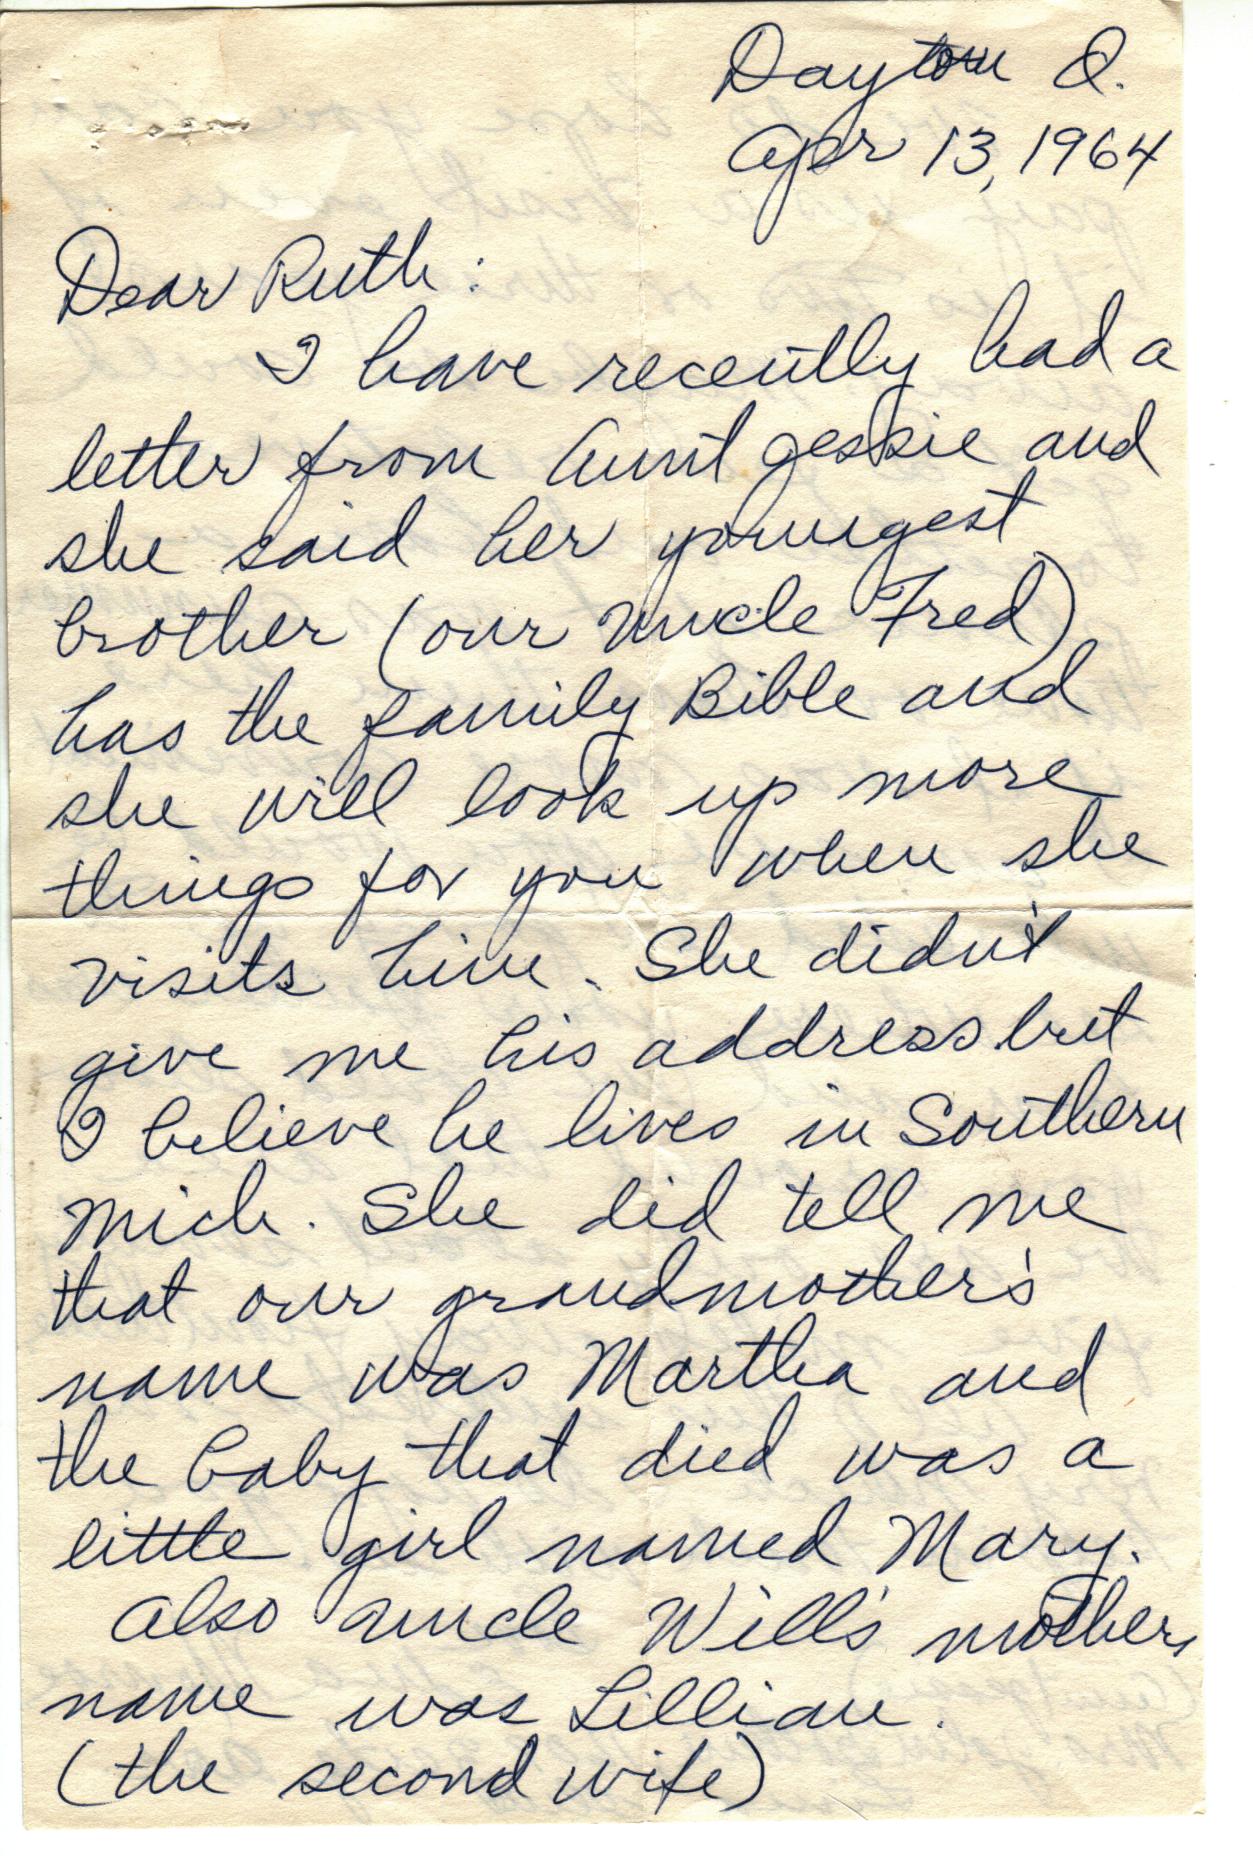 Dayton O.
Apr 13, 1964
Dear Ruth:
I have recently had a
letter from Aunt Jessie and
she said her youngest
brother (our Uncle Fred)
has the family Bible and
she will look up more
things for you when she
visits him. She didn't
give me his address but
I believe he lives in Southern
Mich. She did tell me
that our grandmother's
name was Martha and
the baby that died was a
little girl named Mary.
Also Uncle Will's mothers
name was Lillian.
(the second wife)